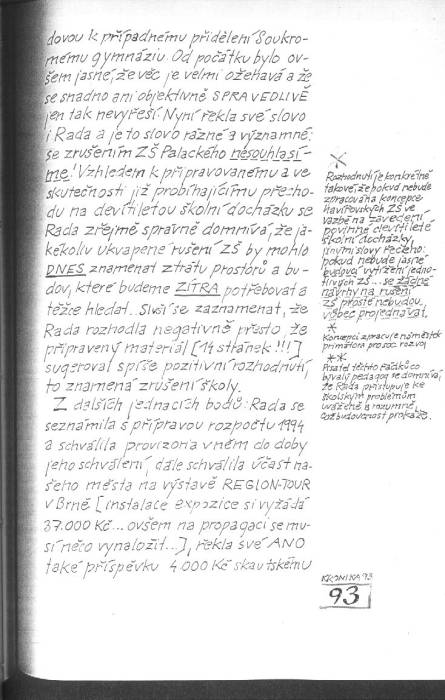 dovou k případnému přidělení Soukro-
mému gymnáziu. Od počátku bylo ov-
šem jasné, že věc je velmi ožehavá a že
se snadno ani objektivně SPRAVEDLIVĚ
jen tak nevyřeší. Nyní řekla své slovo
i Rada a je to slovo rázné a významné:
se zrušením ZŠ Palackého nesouhlasí-
me! Vzhledem k připravovanému a ve
skutečnosti již probíhajícímu přecho-
du na devítiletou školní docházku se
Rada zřejmě správně domnívá, že ja-
kékoliv ukvapené rušení ZŠ by mohlo
DNES znamenat ztrátu prostorů a bu-
dov, které budeme ZÍTRA potřebovat a
těžce hledat. Sluší se zaznamenat, že
Rada rozhodla negativně přesto, že
připravený materiál [14 stránek!!!]
sugeroval spíše pozitivní rozhodnutí,
to znamená zrušení školy.
Z dalších jednacích bodů: Rada se
seznámila s přípravou rozpočtu 1994
a schválila provizoria v něm do doby
jeho schválení, dále schválila účast na-
šeho města na výstavě REGION-TOUR
v Brně [instalace expozice si vyžádá
37.000 Kč... ovšem na propagaci se mu-
sí něco vynaložit...], řekla své ANO
také příspěvku 4.000 Kč skautskému
*
Rozhodnutí je konkrétně
takové, že pokud nebude
zpracována koncepce
havířovských ZŠ ve
vazbě na zavedení
povinné devítileté
školní docházky
jinými slovy řečeno:
pokud nebude jasné
budoucí vytížení jedno-
tlivých ZŠ... se žádné
návrhy na rušení
ZŠ prostě nebudou
vůbec projednávat.
*
Koncepci zpracuje náměstek
primátora pro soc. rozvoj
**
Pisatel těchto řádků co
bývalý pedagog se domnívá,
že Rada přistupuje ke
školským problémům
uváženě a rozumně,
což budoucnost prokáže.
KRONIKA 93
93